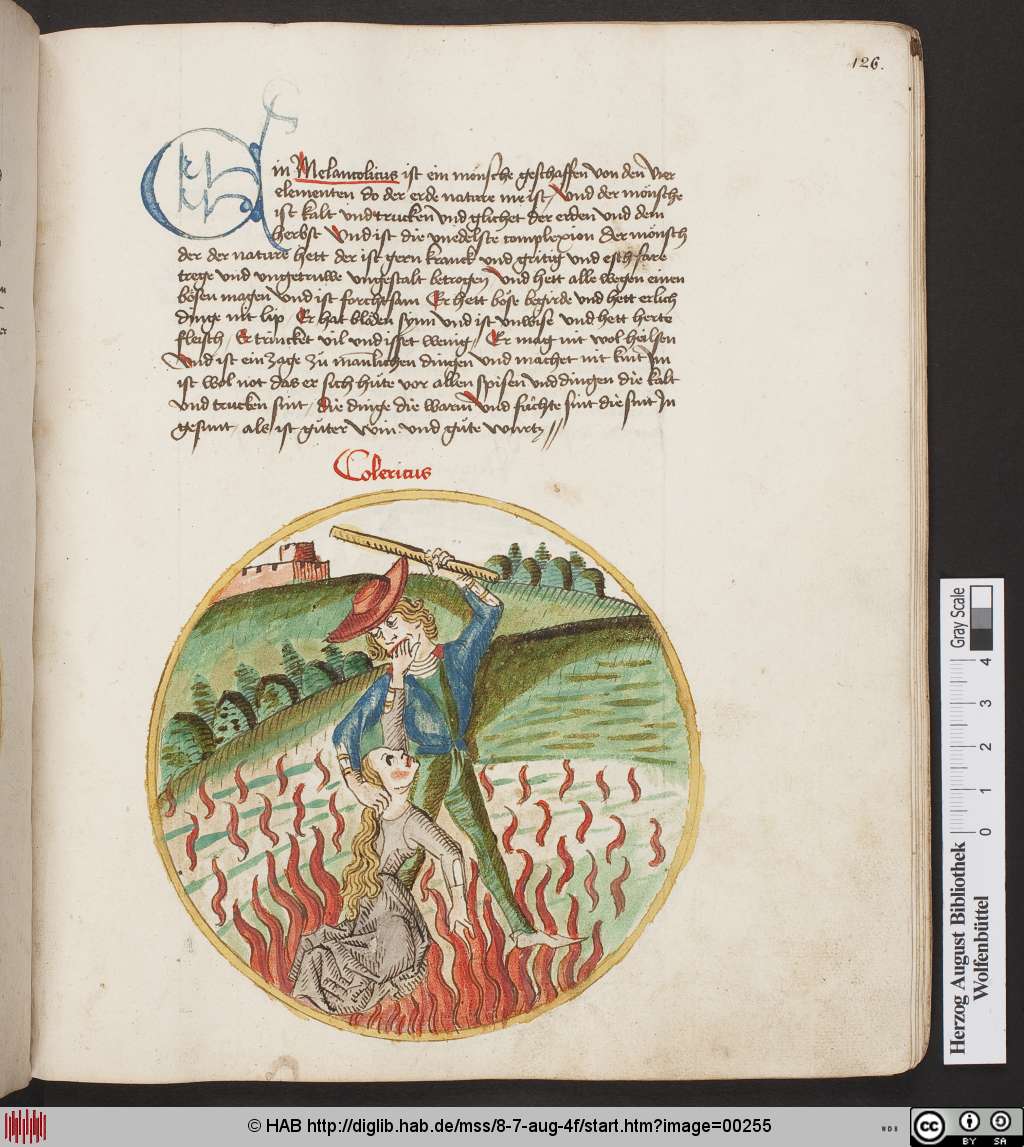 126.
Ein Melancolicus ist ein mönsche geschaffen von den vier
elementen do der erde nature me ist / Und der mönsche
ist kalt und trucken und glichet der erden und dem
herbst Und ist die unedelste complexion Der mönsch
der der nature hett der ist gern kranck und gritig und esch fare
trege und ungetruwe ungestalt betrogen / Und hett alle wegen einen
bösen magen Und ist forchtsam Er hett böse begirde und hett erlich
dinge nit liep / Er hat blöden synn und ist unwise und hett herte
fleisch / Er trincket vil und isset wenig / Er mag nit wol
Und ist ein zage zu manlichen dingen und machet nit Im
ist wol not das er sich hüte vor allen spisen und dingen die kalt
und trucken sint / die dinge die warm Und füchte sint die sint In
gesunt / als ist guter win und gute wurtz //
Colericus
Gray Scale
0 1 2 3 4
Herzog August Bibliothek
Wolfenbüttel
© HAB http://diglib.hab.de/mss/8-7-aug-4f/start.htm?image=00255
WDB
cc BY SA